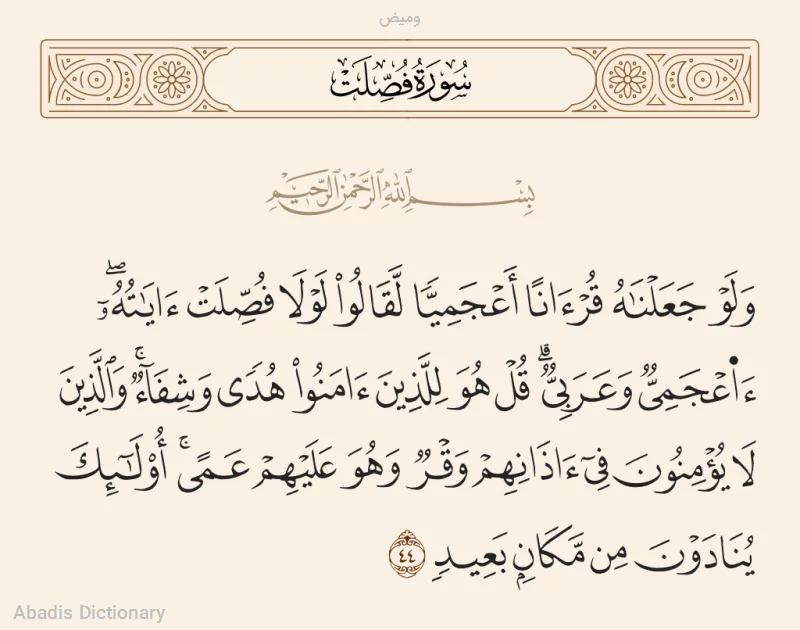 وميض
سُورَةُ فُصِّلَتْ
بِسْمِ ٱللَّهِ ٱلرَّحْمَٰنِ ٱلرَّحِيمِ
وَلَوْ جَعَلْنَٰهُ قُرْءَانًا أَعْجَمِيًّا لَّقَالُوا۟ لَوْلَا فُصِّلَتْ ءَايَٰتُهُۥٓ ۖ
ءَا۬عْجَمِىٌّ وَعَرَبِىٌّ ۗ قُلْ هُوَ لِلَّذِينَ ءَامَنُوا۟ هُدًى وَشِفَآءٌ ۚ وَٱلَّذِينَ
لَا يُؤْمِنُونَ فِىٓ ءَاذَانِهِمْ وَقْرٌ وَهُوَ عَلَيْهِمْ عَمًى ۚ أُو۟لَٰٓئِكَ
يُنَادَوْنَ مِن مَّكَانٍۭ بَعِيدٍ ٤٤
Abadis Dictionary